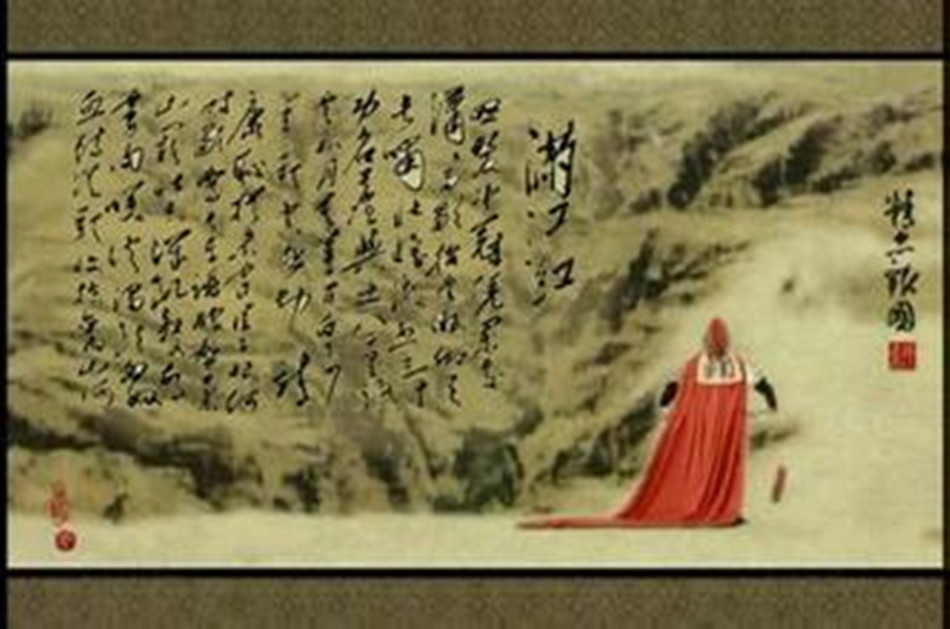 精忠报國
满江红
怒髮冲冠凭阑处
潇潇雨歇抬望眼仰天
长啸壮怀激烈三十
功名尘与土八千里
云和月莫等闲白了
切 靖
康耻犹未雪臣子恨何
时灭驾长车踏破贺兰
山缺壮志饥餐胡虏
肉笑谈渴饮匈奴
血待从头收拾旧山河